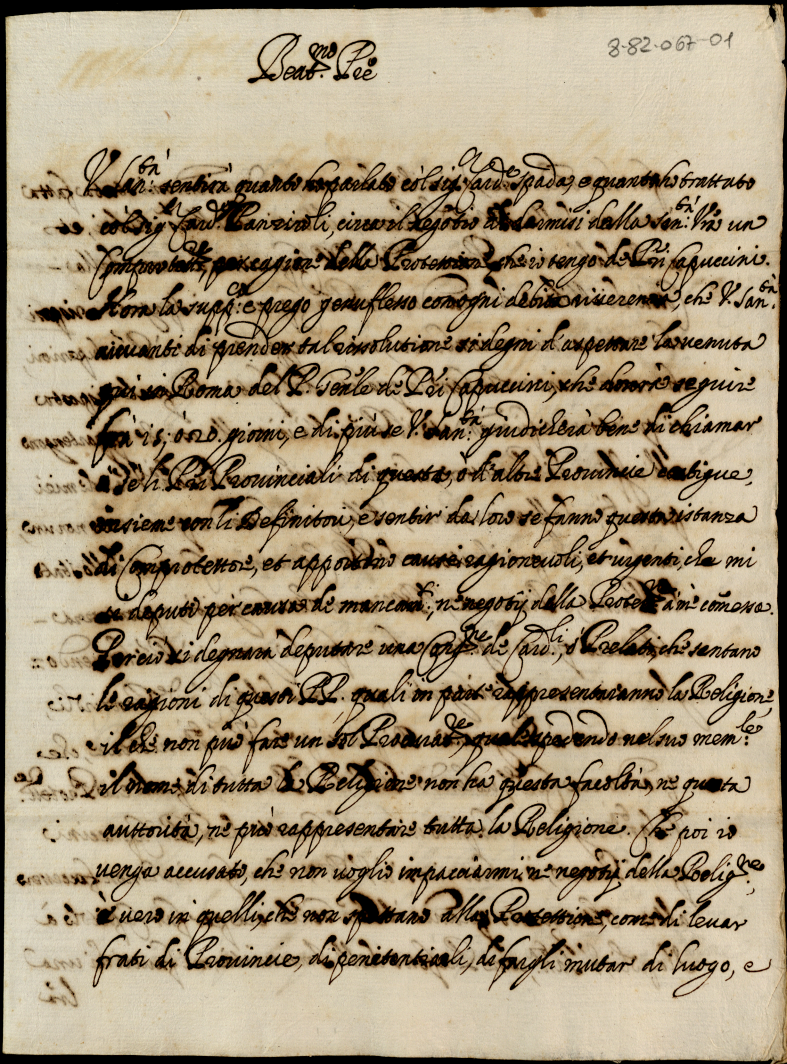 8-82-067-01
Beat.mo Pre
V. San.tà sentirà quanto ho parlato col sig.r Card.e Spada, e quanto ho trattato
col sig.r Card. Panziroli, circa il negotio di darmisi dalla San.tà Vra un
Comprotett.re per caggione della Protettione che io tengo de Pri Capuccini.
Hora la supp.co e prego genuflesso con ogni debita riverenza, che V. San.tà
avvanti di prender tal rissolutione si degni d'aspettare la venuta
qui in Roma del P. Genle de Pri Capuccini, che dovrà seguire
frà 15, ò 20. giorni, e di più se V. San.tà giudicherà bene di chiamar
à se li Pri Provinciali di questa, ò d'altre Provincie contigue,
insieme con li Definitori, e sentir da loro se fanno questa istanza
di Comprotettore, et apportino cause ragionevoli, et urgenti, che mi
si deputi per causa de mancam.ti ne negotij della Protet.ne à me com̃essa.
Perciò si degnarà deputare una Cong.ne de Card.li, ò Prelati, che sentano
le ragioni di questi PP. quali in parte rappresentaranno la Religione,
il che non può fare un sol Procurat.re, qual spedendo nel suo mem.le
il nome di tutta la Religione non ha questa facoltà, ne questa
auttorità, ne può rappresentare tutta la Religione. Che poi io
venga accusato, che non voglio impacciarmi ne negotij della Relig.ne,
è vero in quelli, che non spettano alla Protettione, come di levar
frati di Provincie, di penitentiarli, di fargli mutar di luogo, e